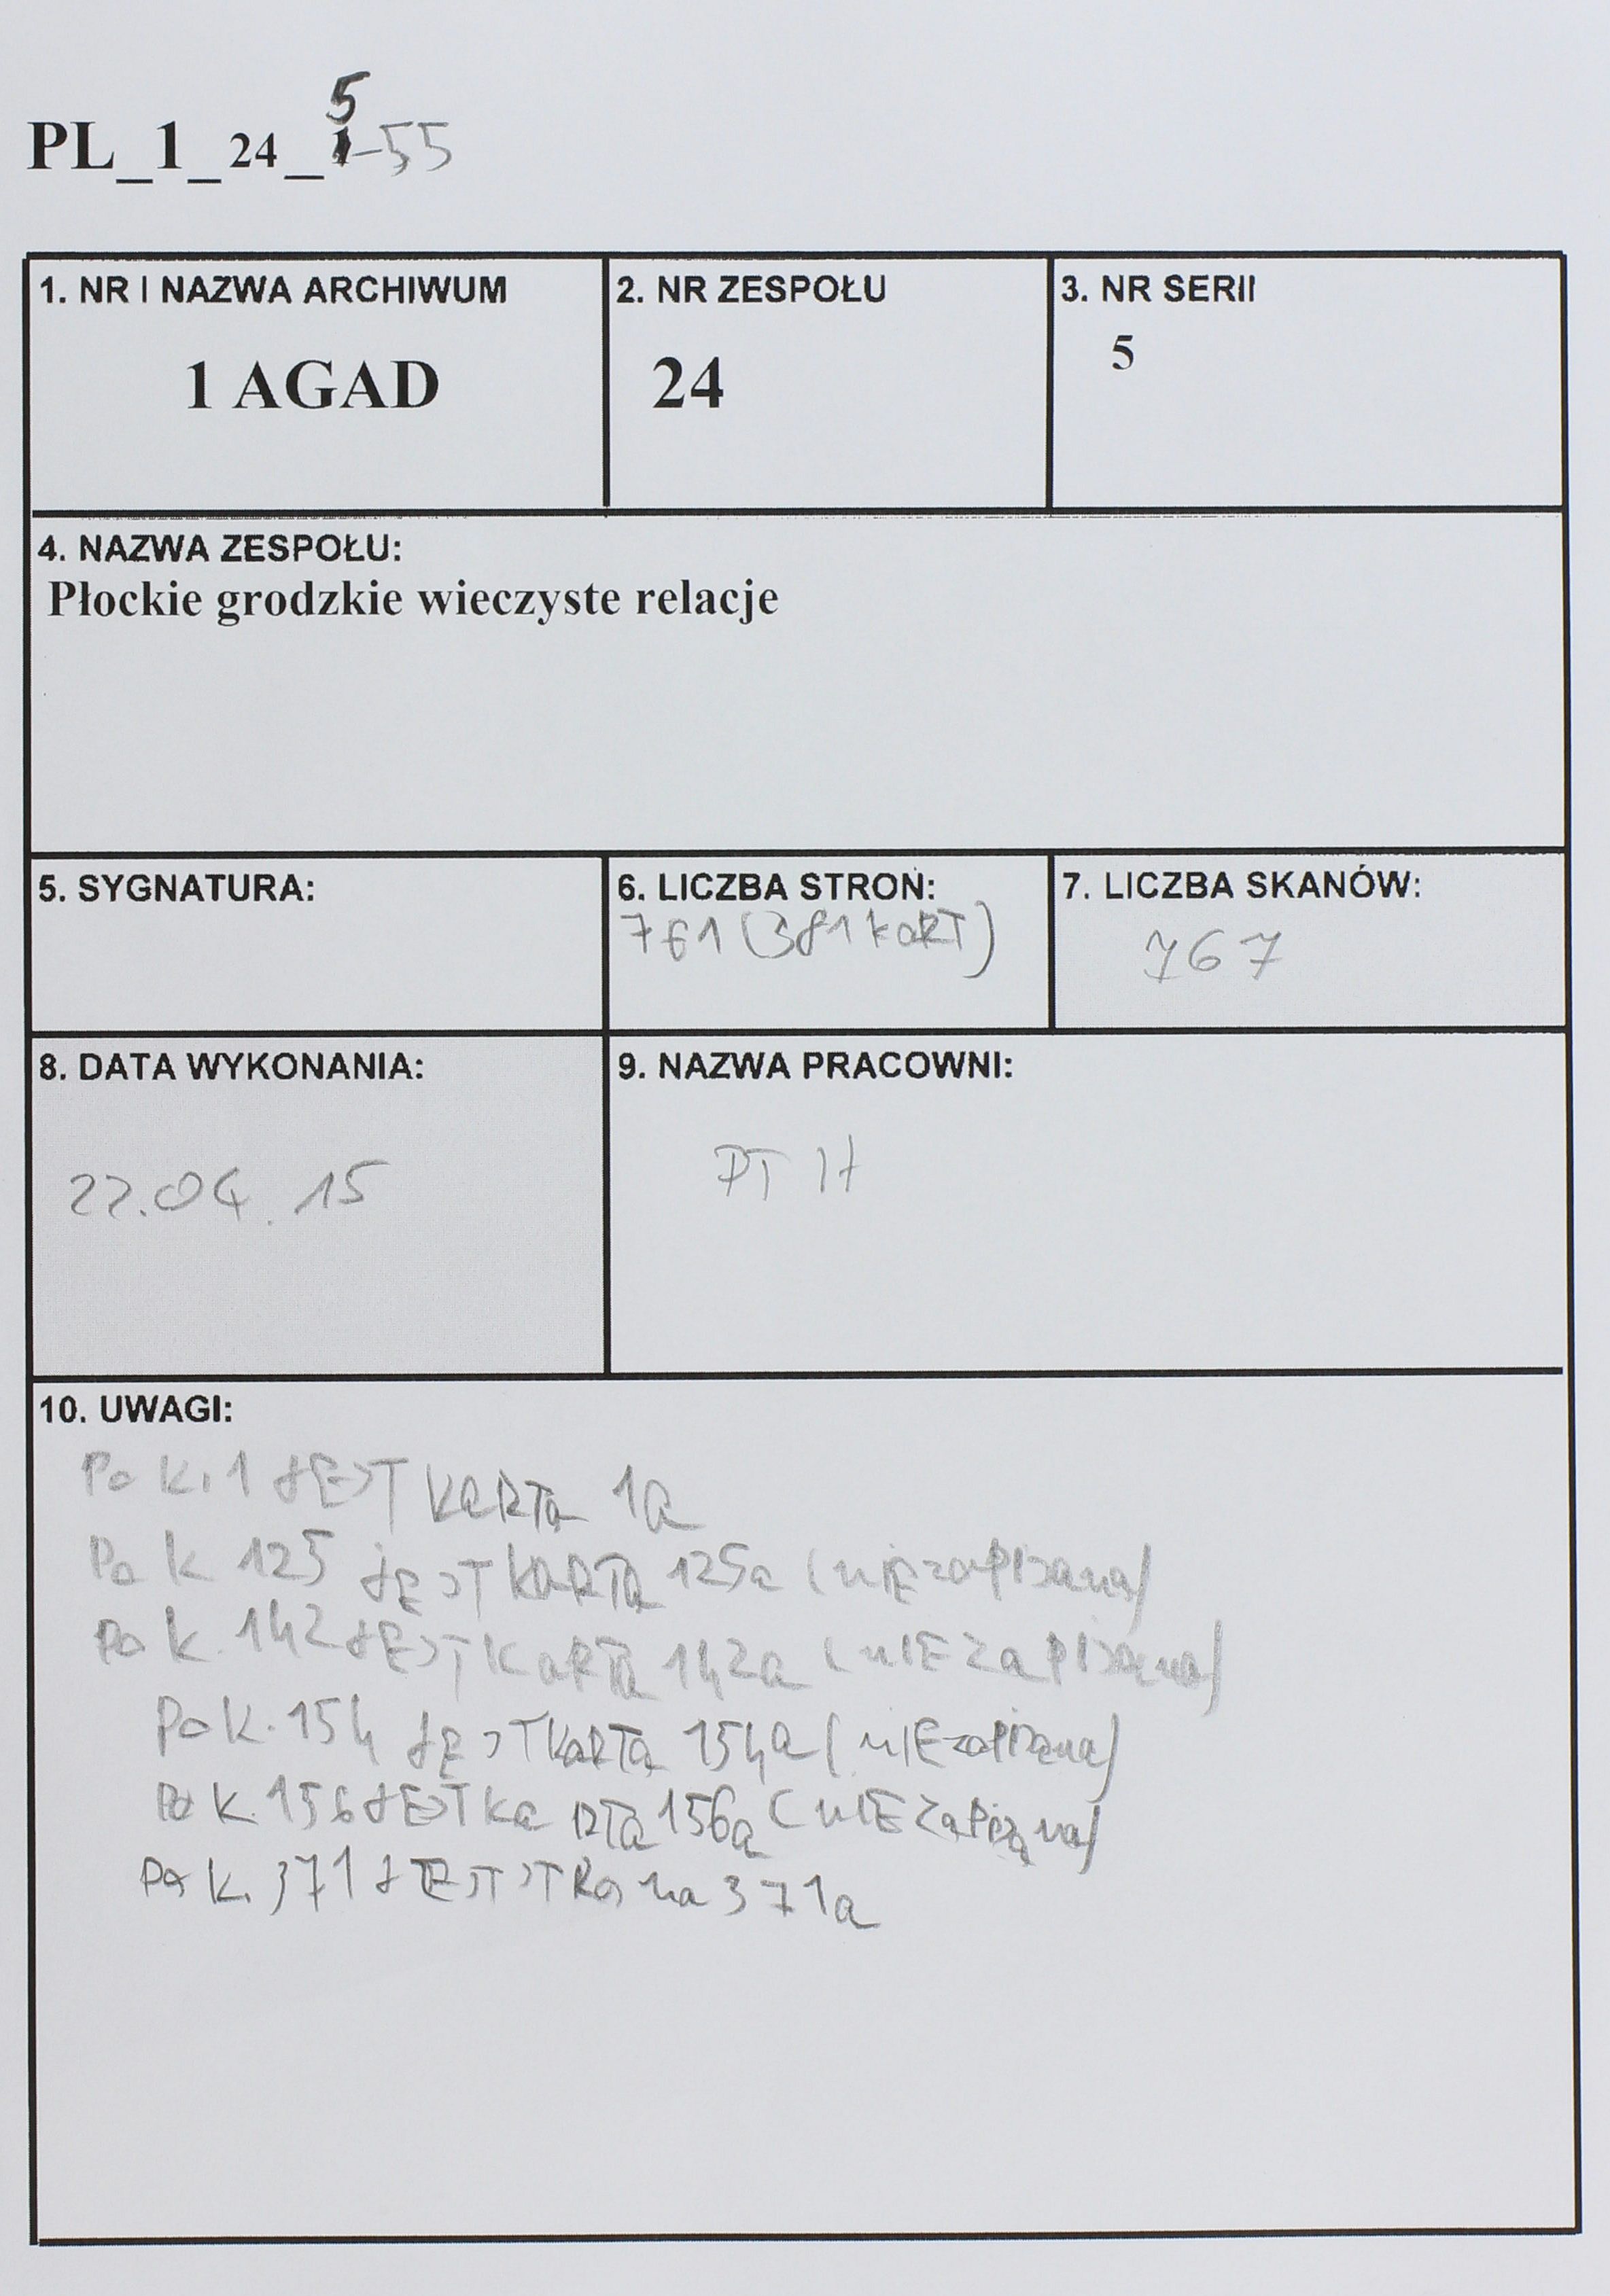 PL_1_24_5-55
1. NR I NAZWA ARCHIWUM
1 AGAD
2. NR ZESPOŁU
24
3. NR SERII
5
4. NAZWA ZESPOŁU:
Płockie grodzkie wieczyste relacje
5. SYGNATURA:
6. LICZBA STRON:
761 (381 kART)
7. LICZBA SKANÓW:
767
8. DATA WYKONANIA:
22.04.15
9. NAZWA PRACOWNI:
PT 17
10. UWAGI:
Po K. 1 JEST KARTA 1a
Po K 125 JEST KARTA 125a (NIEzapisana)
Po K. 142 JEST KARTA 142a (NIEzapisana)
Po K. 154 JEST KARTA 154a (NIEzapisana)
Po K. 156 JEST KARTA 156a (NIEzapisana)
Po K. 371 JEST STRona 371a